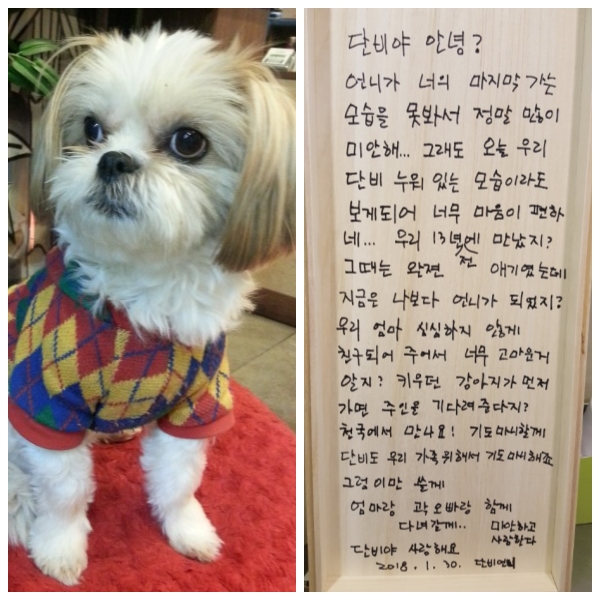 단비야 안녕?
언니가 너의 마지막 가는
모습을 못봐서 정말 많이
미안해... 그래도 오늘 우리
단비 누워 있는 모습이라도
보게되어 너무 마음이 편하
네... 우리 13년전에 만났지?
그때는 완젼 애기였는데
지금은 나보다 언니가 되었지?
우리 엄마 심심하지 않게
친구되어 주어서 너무 고마운거
알지? 키우던 강아지가 먼저
가면 주인을 기다려준다지?
천국에서 만나요! 기도마니할게
단비도 우리 가족위해서 기도마니해죠
그럼 이만 쓸게
엄마랑 오빠랑 함께
다녀갈게.. 미안하고
사랑한다
단비야 사랑해요
2018. 1. 30. 단비언니